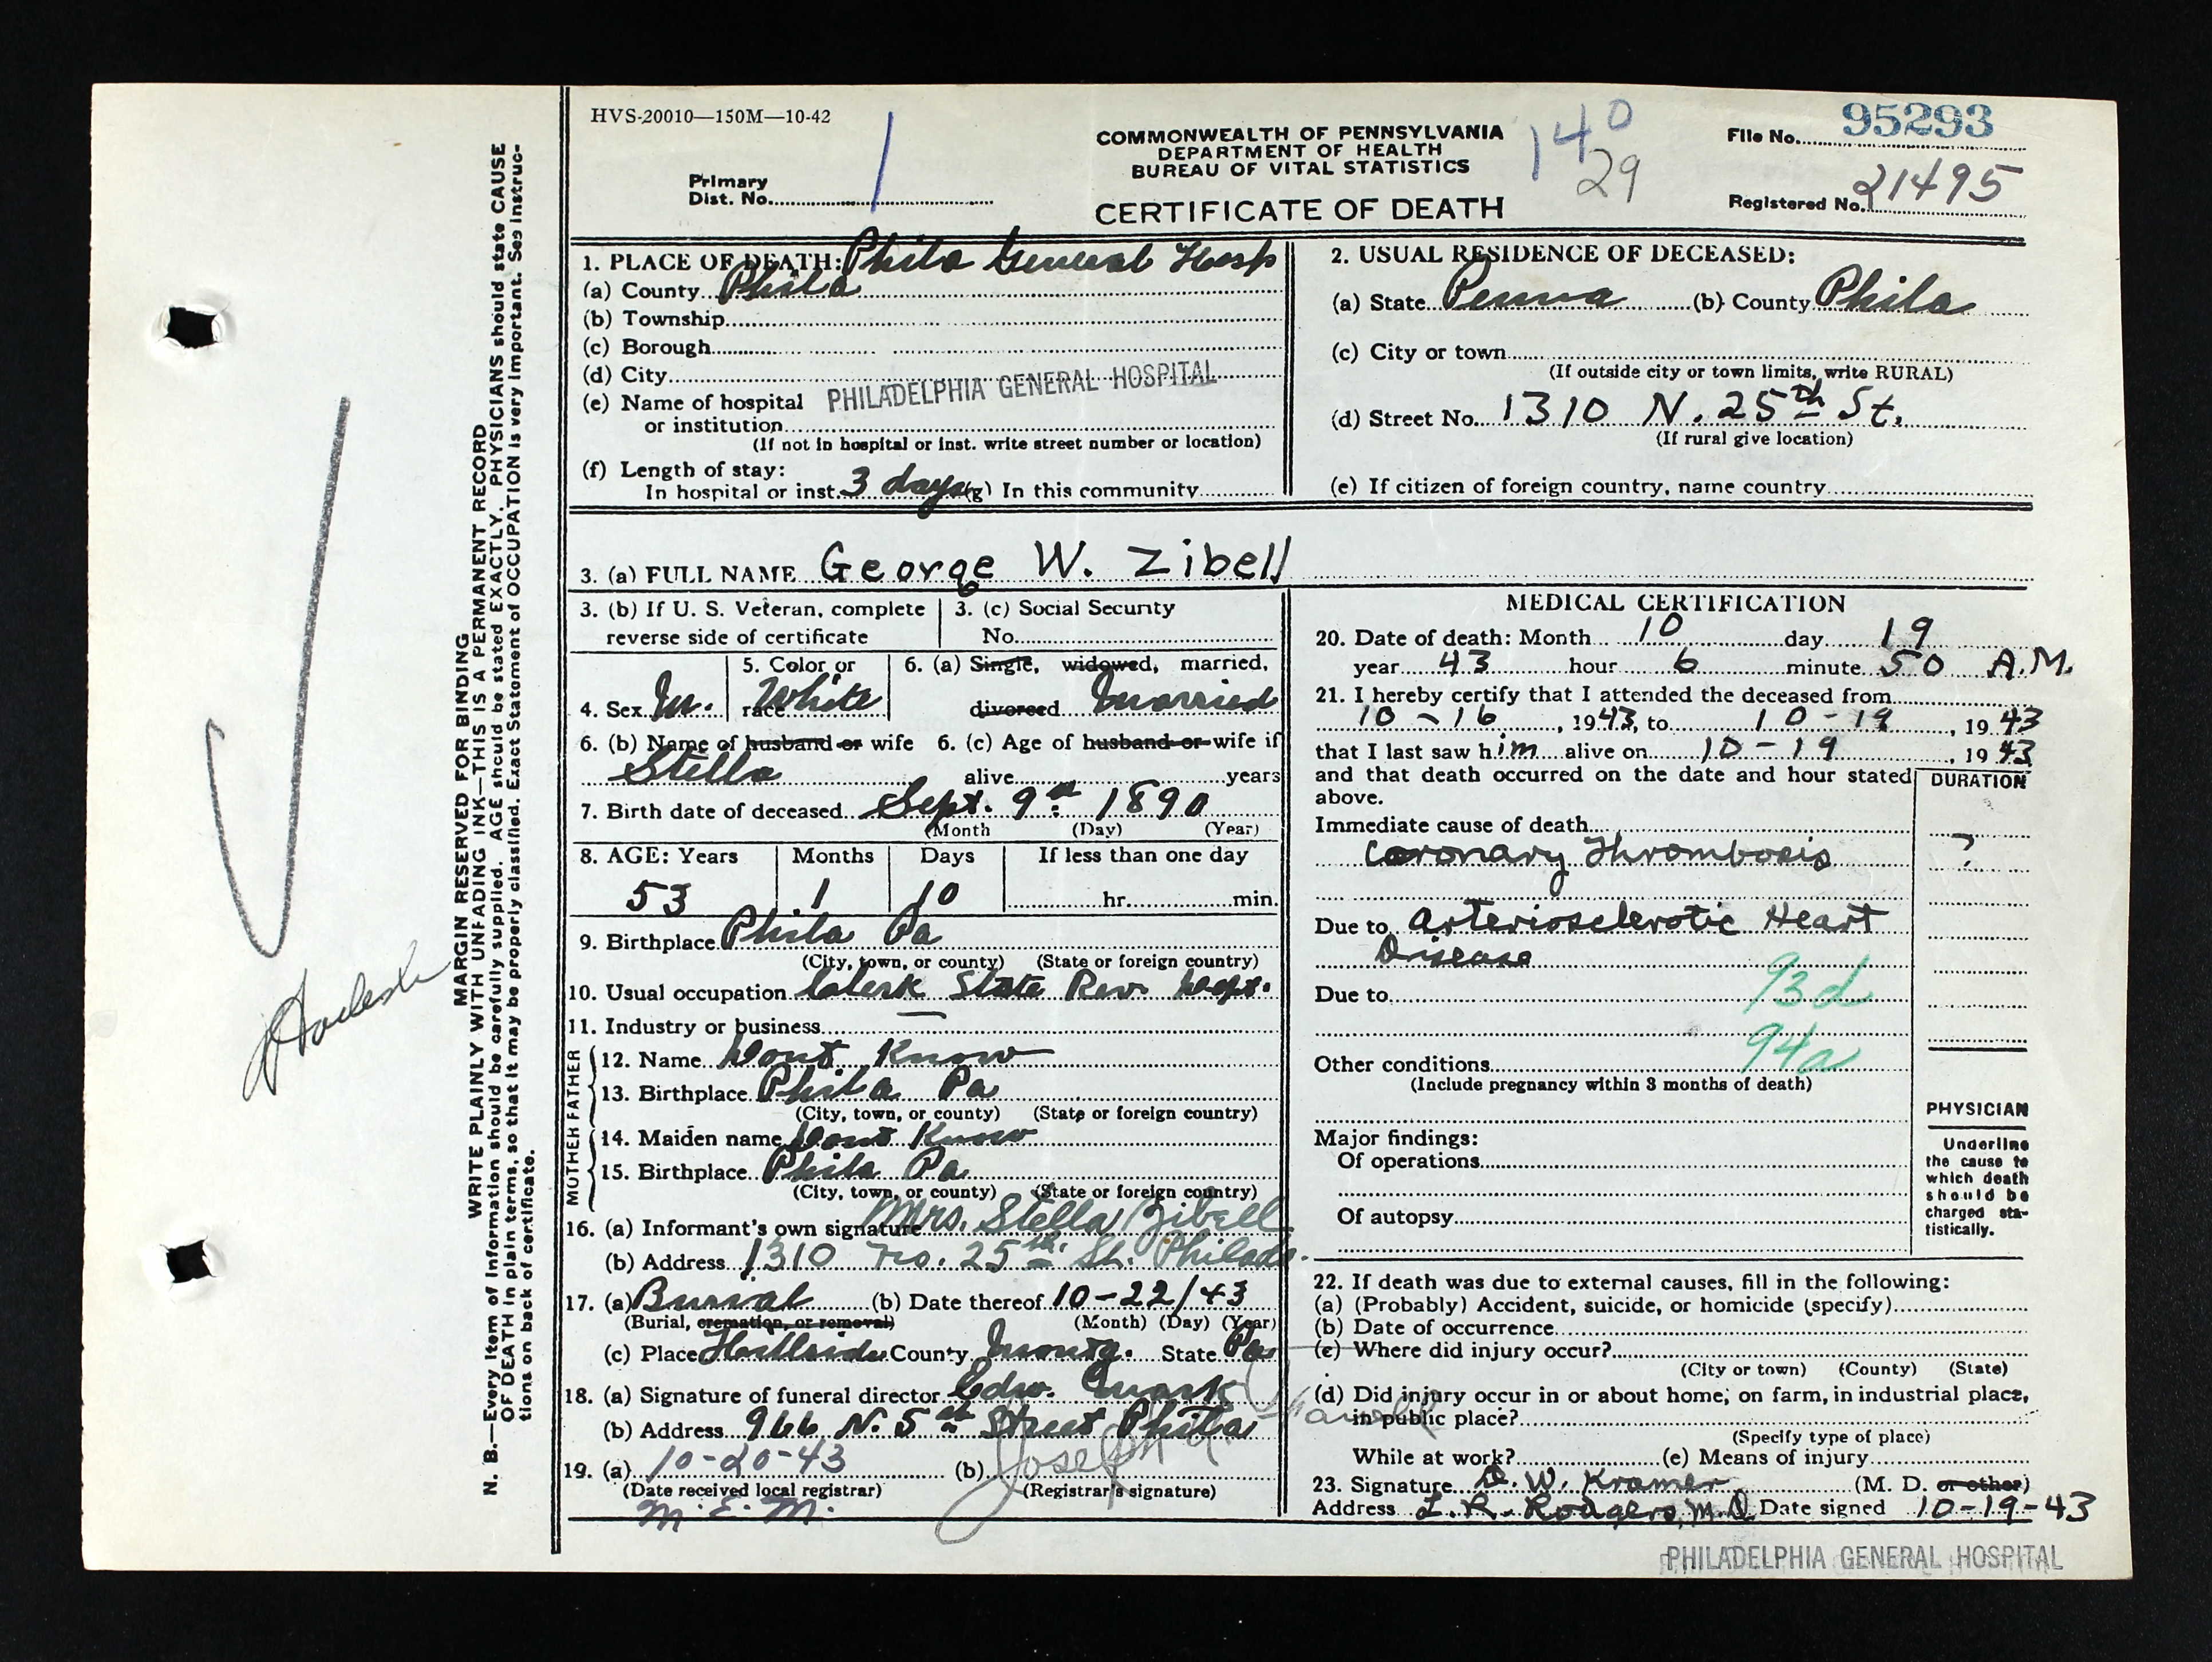 HVS-20010—150M—10-42
Primary
Dist. No. 1
COMMONWEALTH OF PENNSYLVANIA
DEPARTMENT OF HEALTH
BUREAU OF VITAL STATISTICS
CERTIFICATE OF DEATH
140
29
File No. 95293
Registered No. 21495
MARGIN RESERVED FOR BINDING
WRITE PLAINLY WITH UNFADING INK—THIS IS A PERMANENT RECORD
N. B.—Every item of information should be carefully supplied. AGE should be stated EXACTLY. PHYSICIANS should state CAUSE
OF DEATH in plain terms, so that it may be properly classified. Exact Statement of OCCUPATION is very important. See instruc-
tions on back of certificate.
1. PLACE OF DEATH: Phila General Hosp
(a) County Phila
(b) Township
(c) Borough
(d) City
(e) Name of hospital PHILADELPHIA GENERAL HOSPITAL
or institution
(If not in hospital or inst. write street number or location)
(f) Length of stay:
In hospital or inst. 3 days (g) In this community
2. USUAL RESIDENCE OF DECEASED:
(a) State Penna (b) County Phila
(c) City or town
(If outside city or town limits, write RURAL)
(d) Street No. 1310 N. 25th St.
(If rural give location)
(e) If citizen of foreign country, name country
3. (a) FULL NAME George W. Zibell
3. (b) If U. S. Veteran, complete
reverse side of certificate
3. (c) Social Security
No.
4. Sex M.
5. Color or
race White
6. (a) Single, widowed, married,
divorced Married
6. (b) Name of husband or wife
Stella
6. (c) Age of husband or wife if
alive years
7. Birth date of deceased Sept. 9th 1890
(Month (Day) (Year)
8. AGE: Years Months Days If less than one day
53 1 10 hr. min.
9. Birthplace Phila Pa
(City, town, or county) (State or foreign country)
10. Usual occupation Clerk State Rev Dept.
11. Industry or business —
FATHER
12. Name Dont Know
13. Birthplace Phila Pa
(City, town, or county) (State or foreign country)
MOTHER
14. Maiden name Dont Know
15. Birthplace Phila Pa
(City, town, or county) (State or foreign country)
16. (a) Informant's own signature Mrs. Stella Zibell
(b) Address 1310 No. 25th St. Philada.
17. (a) Burial (b) Date thereof 10-22/43
(Burial, cremation, or removal) (Month) (Day) (Year)
(c) Place Hillside County Montg. State Pa
18. (a) Signature of funeral director Edw.
(b) Address 966 N. 5th Street Phila
19. (a) 10-20-43 (b) Joseph
(Date received local registrar) (Registrar's signature)
M. E. M.
MEDICAL CERTIFICATION
20. Date of death: Month 10 day 19
year 43 hour 6 minute 50 A.M.
21. I hereby certify that I attended the deceased from
10-16, 1943, to 10-19, 1943
that I last saw him alive on 10-19, 1943
and that death occurred on the date and hour stated
above.
DURATION
Immediate cause of death
Coronary Thrombosis ?
Due to Arteriosclerotic Heart
Disease
93d
Due to
94a
Other conditions
(Include pregnancy within 3 months of death)
Major findings:
Of operations
Of autopsy
PHYSICIAN
Underline
the cause to
which death
should be
charged sta-
tistically.
22. If death was due to external causes, fill in the following:
(a) (Probably) Accident, suicide, or homicide (specify)
(b) Date of occurrence
(c) Where did injury occur?
(City or town) (County) (State)
(d) Did injury occur in or about home, on farm, in industrial place,
in public place?
(Specify type of place)
While at work? (e) Means of injury
23. Signature D. W. Kramer (M. D. or other)
Address L. R. Rodgers, M.D. Date signed 10-19-43
PHILADELPHIA GENERAL HOSPITAL